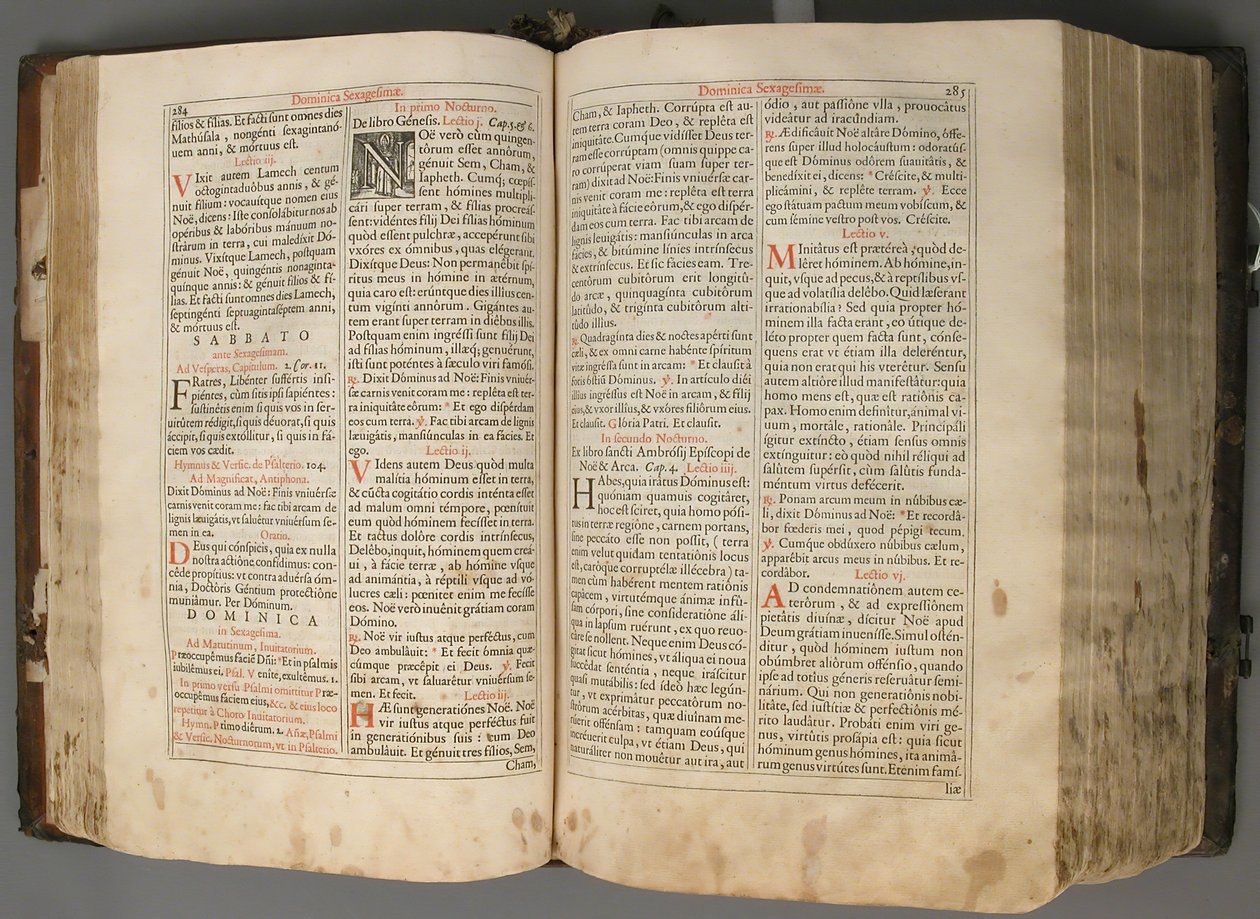 284
Dominica Sexagesimæ.
filios & fílias. Et facti sunt omnes dies
Mathúsala, nongénti sexagintanó-
uem anni, & mórtuus est.
Lectio iij.
VIxit autem Lamech centum
octogintaduôbus annis, & gé-
nuit fílium: vocauítque nomen eius
Noë, dicens: Iste consolâbitur nos ab
opéribus & labóribus mánuum no-
strârum in terra, cui maledíxit Dó-
minus. Vixítque Lamech, postquam
génuit Noë, quingéntis nonaginta-
quinque annis: & génuit fílios & fí-
lias. Et facti sunt omnes dies Lamech,
septingénti septuagintaséptem anni,
& mórtuus est.
SABBATO
ante Sexagesimam.
Ad Vesperas, Capitulum. 2. Cor. 11.
FRatres, Libénter suffértis insi-
piéntes, cùm sitis ipsi sapiéntes:
sustinétis enim si quis vos in ser-
uitûtem rédigit, si quis déuorat, si quis
áccipit, si quis extóllitur, si quis in fá-
ciem vos cædit.
Hymnus & Versic. de Psalterio. 104.
Ad Magnificat, Antiphona.
Dixit Dóminus ad Noë: Finis vniuérsæ
carnis venit coram me: fac tibi arcam de
lignis læuigâtis, vt saluêtur vniuérsum se-
men in ea. Oratio.
DEus qui cónspicis, quia ex nulla
nostra actióne confidimus: con-
céde propítius: vt contra aduérsa óm-
nia, Doctôris Géntium protectióne
muniâmur. Per Dóminum.
DOMINICA
in Sexagesima.
Ad Matutinum, Inuitatorium.
Præoccupêmus faciê Dñi: * Et in psalmis
iubilêmus ei. Psal. Venite, exultêmus. 1.
In primo versu Psalmi omittitur Præ-
occupêmus faciem eius, &c. & eius loco
repetitur à Choro Inuitatorium.
Hymn. Primo diêrum. 2. Añæ, Psalmi
& Versic. Nocturnorum, vt in Psalterio.
In primo Nocturno.
De libro Génesis. Lectio j. Cap. 5. & 6.
NOë verò cùm quingen-
tôrum esset annôrum,
génuit Sem, Cham, &
Iapheth. Cumq; cœpís-
sent hómines multipli-
cári super terram, & fílias procreás-
sent: vidéntes filij Dei fílias hóminum
quòd essent pulchræ, accepérunt sibi
vxóres ex ómnibus, quas elégerant.
Dixítque Deus: Non permanêbit spí-
ritus meus in hómine in ætérnum,
quia caro est: erúntque dies illíus cen-
tum vigínti annôrum. Gigántes au-
tem erant super terram in diébus illis.
Postquam enim ingréssi sunt filij Dei
ad fílias hóminum, illæq; genuérunt,
isti sunt poténtes à sæculo viri famósi.
℟. Dixit Dóminus ad Noë: Finis vniuér-
sæ carnis venit coram me: repléta est ter-
ra iniquitâte eôrum: * Et ego dispérdam
eos cum terra. ℣. Fac tibi arcam de lignis
læuigâtis, mansiúnculas in ea fácies. Et
ego. Lectio ij.
VIdens autem Deus quòd multa
malítia hóminum esset in terra,
& cúcta cogitátio cordis inténta esset
ad malum omni témpore, pœnítuit
eum quòd hóminem fecísset in terra.
Et tactus dolôre cordis intrínsecus,
Delêbo, inquit, hóminem quem creá-
ui, à fácie terræ, ab hómine vsque
ad animántia, à réptili vsque ad vó-
lucres cæli: pœnitet enim me fecísse
eos. Noë verò inuênit grátiam coram
Dómino.
℟. Noë vir iustus atque perféctus, cum
Deo ambulâuit: * Et fecit ómnia quæ-
cúmque præcêpit ei Deus. ℣. Fecit
sibi arcam, vt saluarêtur vniuérsum se-
men. Et fecit. Lectio iij.
HÆ sunt generatiónes Noë. Noë
vir iustus atque perféctus fuit
in generatiónibus suis: cum Deo
ambulâuit. Et génuit tres fílios, Sem,
Cham,
Dominica Sexagesimæ.
285
Cham, & Iapheth. Corrúpta est au-
tem terra coram Deo, & repléta est
iniquitâte. Cumque vidísset Deus ter-
ram esse corrúptam (omnis quippe ca-
ro corrúperat viam suam super ter-
ram) dixit ad Noë: Finis vniuérsæ car-
nis venit coram me: repléta est terra
iniquitâte à fácie eôrum, & ego dispér-
dam eos cum terra. Fac tibi arcam de
lignis leuigâtis: mansiúnculas in arca
fácies, & bitúmine línies intrínsecus
& extrínsecus. Et sic fácies eam. Tre-
centôrum cubitôrum erit longitú-
do arcæ, quinquagínta cubitôrum
latitûdo, & trigínta cubitôrum alti-
tûdo illíus.
℟. Quadragínta dies & noctes apérti sunt
cæli, & ex omni carne habénte spíritum
vitæ ingréssa sunt in arcam: * Et clausit à
foris óstiû Dóminus. ℣. In artículo diéi
illíus ingréssus est Noë in arcam, & fílij
eius, & vxor illíus, & vxóres filiôrum eius.
Et clausit. Glória Patri. Et clausit.
In secundo Nocturno.
Ex libro sancti Ambrósij Epíscopi de
Noë & Arca. Cap. 4. Lectio iiij.
HAbes, quia irâtus Dóminus est:
quóniam quamuis cogitâret,
hoc est sciret, quia homo pósi-
tus in terræ regióne, carnem portans,
sine peccáto esse non possit, (terra
enim velut quidam tentatiônis locus
est, caróque corruptélæ illécebra) ta-
men cùm habérent mentem ratiônis
capâcem, virtutémque ánimæ infû-
sam córpori, sine consideratióne áli-
qua in lapsum ruérunt, ex quo reuo-
câre se nollent. Neque enim Deus có-
gitat sicut hómines, vt áliqua ei noua
succédat senténtia, neque iráscitur
quasi mutábilis: sed ídeo hæc legún-
tur, vt exprimâtur peccatôrum no-
strôrum acérbitas, quæ diuínam me-
rúerit offénsam: tamquam eoúsque
incréuerit culpa, vt étiam Deus, qui
naturáliter non mouêtur aut ira, aut
ódio, aut passióne vlla, prouocâtus
videâtur ad iracúndiam.
℟. Ædificâuit Noë altâre Dómino, ôffe-
rens super illud holocáustum: odoratús-
que est Dóminus odôrem suauitâtis, &
benedíxit ei, dicens: * Créscite, & multi-
plicámini, & repléte terram. ℣. Ecce
ego státuam pactum meum vobíscum, &
cum sémine vestro post vos. Créscite.
Lectio v.
MInitâtus est prætérea, quòd de-
lêret hóminem. Ab hómine, in-
quit, vsque ad pecus, & à reptílibus vs-
que ad volatília delêbo. Quid læserant
irrationabília? Sed quia propter hó-
minem illa facta erant, eo vtique de-
léto propter quem facta sunt, cónse-
quens erat vt étiam illa deleréntur,
quia non erat qui his vterêtur. Sensu
autem altióre illud manifestâtur: quia
homo mens est, quæ est ratiônis ca-
pax. Homo enim definîtur, ánimal vi-
uum, mortále, rationále. Principáli
ígitur extíncto, étiam sensus omnis
extínguitur: eò quòd nihil réliqui ad
salûtem supérsit, cùm salûtis funda-
méntum virtus defécerit.
℟. Ponam arcum meum in núbibus cæ-
li, dixit Dóminus ad Noë: * Et recordâ-
bor fœderis mei, quod pépigi tecum.
℣. Cumque obdúxero núbibus cælum,
apparêbit arcus meus in núbibus. Et re-
cordâbor. Lectio vj.
AD condemnatiônem autem ce-
terôrum, & ad expressiônem
pietâtis diuínæ, dícitur Noë apud
Deum grátiam inuenísse. Simul ostén-
ditur, quòd hóminem iustum non
obúmbret aliôrum offénsio, quando
ipse ad totíus géneris reseruâtur semi-
nárium. Qui non generatiônis nobi-
litâte, sed iustítiæ & perfectiônis mé-
rito laudâtur. Probáti enim viri ge-
nus, virtûtis prosápia est: quia sicut
hóminum genus hómines, ita animâ-
rum genus virtûtes sunt. Etenim famí-
liæ